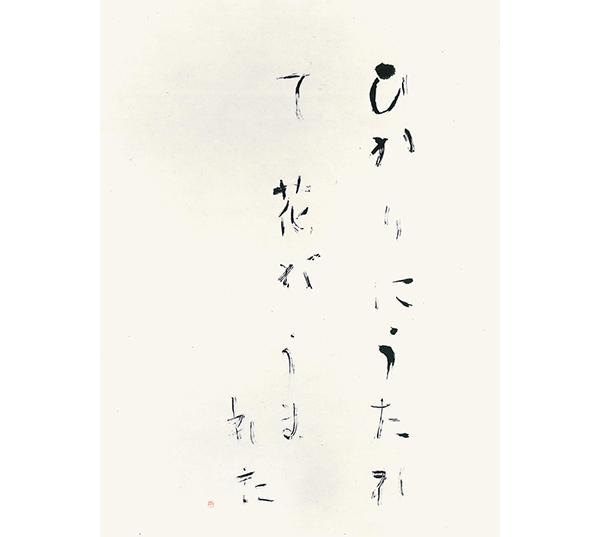 ひかりにうたれ
て 花がうま
れた